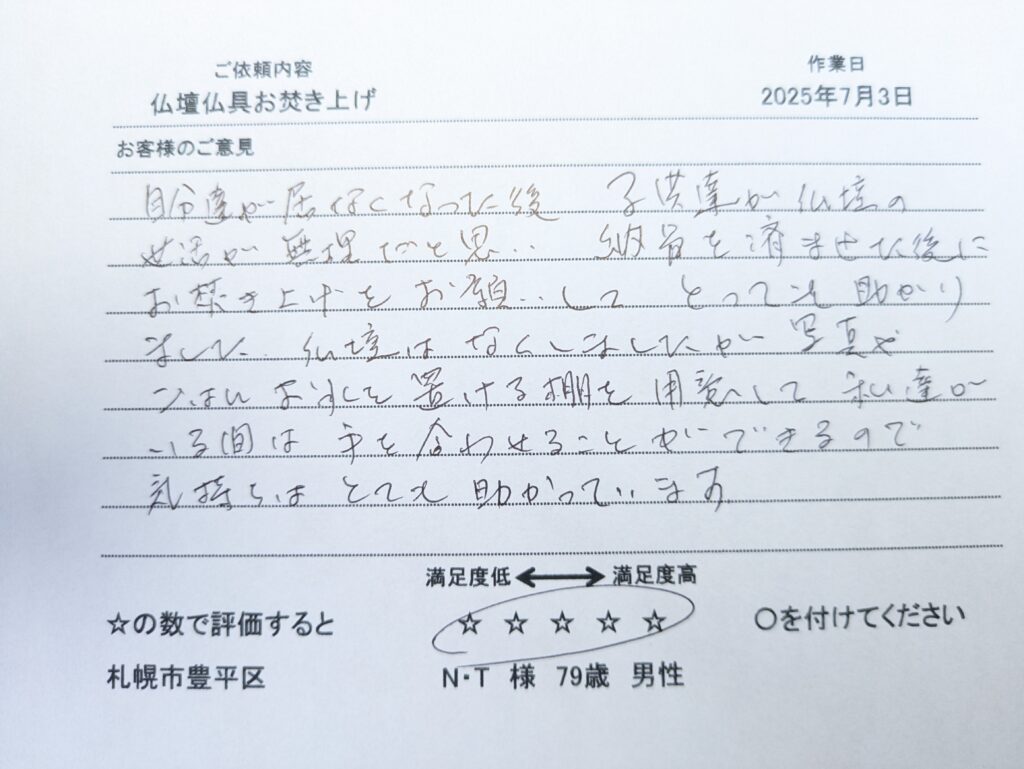 ご依頼内容
作業日
仏壇仏具お焚き上げ
2025年7月3日
お客様のご意見
自分達が居なくなった後 子供達が仏壇の
世話が無理だと思い 納骨を済ませた後に
お焚き上げをお願いして とっても助かり
ました. 仏壇はなくしましたが 写真や
ごはん お水を置ける棚を用意して 私達が
いる間は 手を合わせることができるので
気持ちは とても 助かっています.
満足度低 ⟷ 満足度高
☆の数で評価すると
☆ ☆ ☆ ☆ ☆
〇を付けてください
札幌市豊平区
N・T 様 79歳 男性